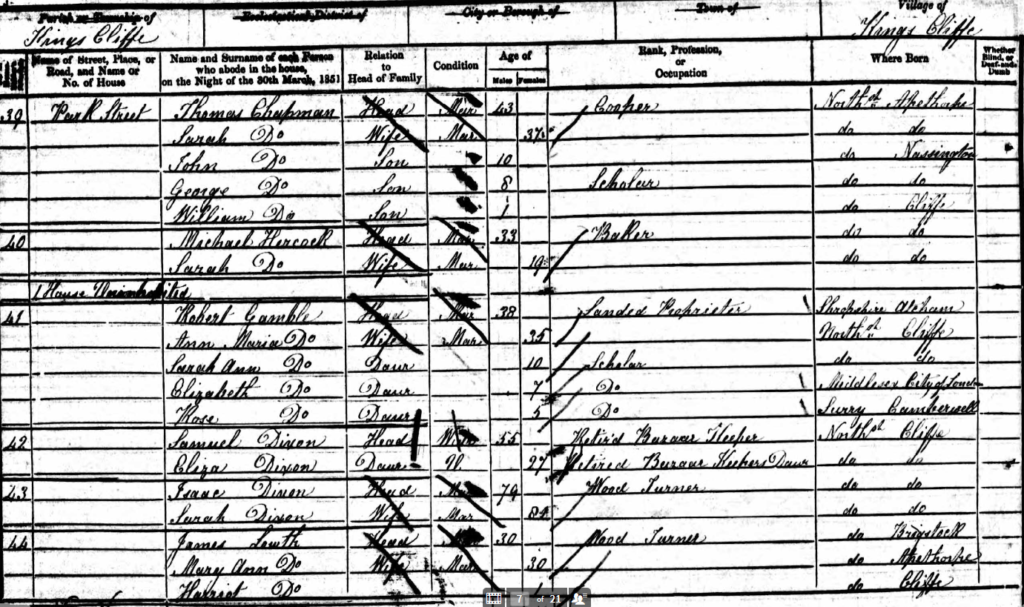 Parish or Township of Ecclesiastical District of City or Borough of Town of Village of
Kings Cliffe Kings Cliffe
Name of Street, Place, or Road, and Name or No. of House Name and Surname of each Person who abode in the house, on the Night of the 30th March, 1851 Relation to Head of Family Condition Age of Males Females Rank, Profession, or Occupation Where Born Whether Blind, or Deaf-and-Dumb
39 Park Street Thomas Chapman Head Mar 43 Cooper North Apethorpe
Sarah Do Wife Mar 37 do do
John Do Son 10 do Nassington
George Do Son 8 Scholar do do
William Do Son 1 do Cliffe
40 Michael Hercock Head Mar 33 Baker do do
Sarah Do Wife Mar 19 do do
1 House Uninhabited
41 Robert Gamble Head Mar 38 Landed Proprietor Shropshire
Ann Maria Do Wife Mar 35 North Cliffe
Sarah Ann Do Daur 10 Scholar do do
Elizabeth Do Daur 7 Do Middlesex City of
Rose Do Daur 5 Do Surry Camberwell
42 Samuel Dixon Head 55 Retir'd Bazaar Keeper North Cliffe
Eliza Dixon Daur U 27 Retired Bazaar Keepers Daur do do
43 Isaac Dixon Head Mar 79 Wood Turner do do
Sarah Dixon Wife Mar 84 do do
44 James Louth Head 30 Wood Turner do Brigstock
Mary Ann Do Wife Mar 30 do Apethorpe
Harriet Do do Cliffe
7 of 21